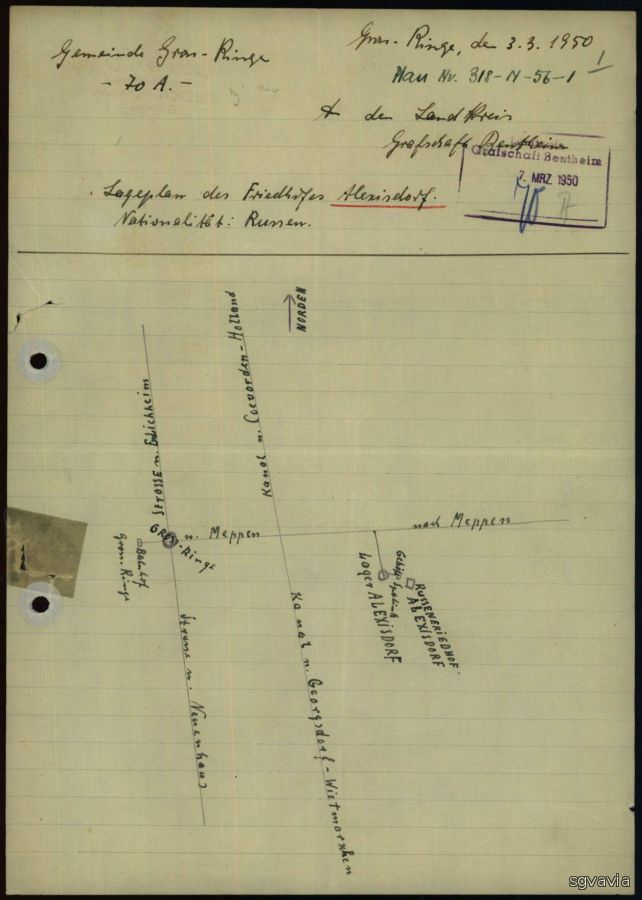 Gemeinde Gross-Ringe
- 70 A. -
Gross-Ringe, den 3.3.1950
Plan Nr. 318-N-56-1
An den Landkreis
Grafschaft Bentheim
Grafschaft Bentheim
7. MRZ. 1950
Lageplan des Friedhofes Alexisdorf.
Nationalität: Russen.
NORDEN
Strasse n. Emlichheim
Kanal n. Coevorden-Holland
GROSS-Ringe
n. Meppen
nach Meppen
Bahnhof
Gross-Ringe
Lager ALEXISDORF
RUSSENFRIEDHOF
ALEXISDORF
Strasse n. Neuenhaus
Kanal n. Georgsdorf-Wietmarschen
sgvavia